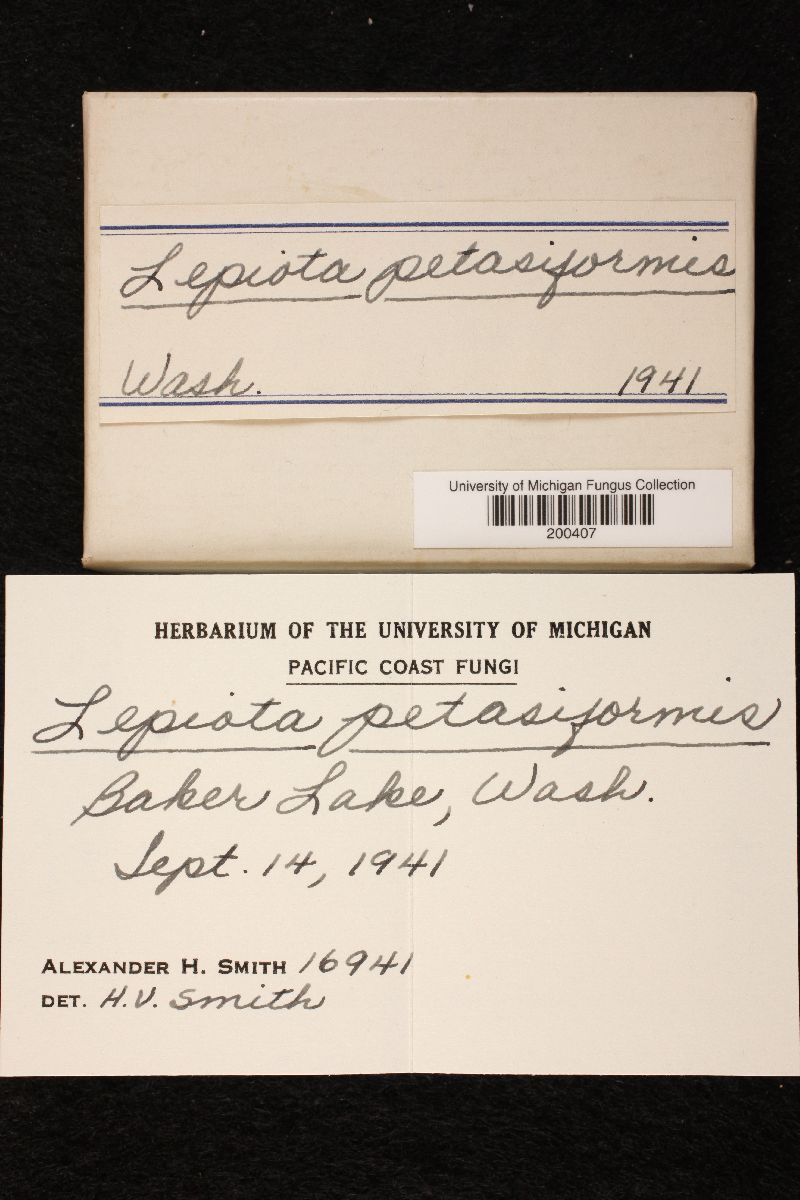 Lepiota petasiformis
Wash. 1941
University of Michigan Fungus Collection
200407
HERBARIUM OF THE UNIVERSITY OF MICHIGAN
PACIFIC COAST FUNGI
Lepiota petasiformis
Baker Lake, Wash.
Sept. 14, 1941
ALEXANDER H. SMITH 16941
DET. H.V. Smith